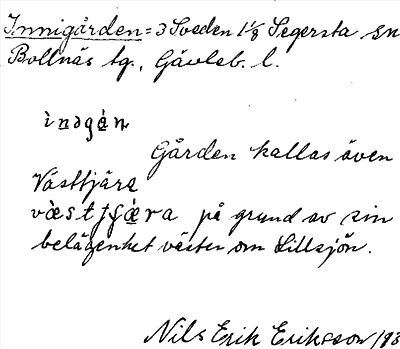 Innigården = 3 Sveden 1 1/8 Segersta sn
Bollnäs tg., Gävleb. l.
ìnǝgán
Gården kallas även
Västtjära
væ̀sttʃæ̀ra på grund av sin
belägenhet väster om Lillsjön.
Nils Erik Eriksson /193